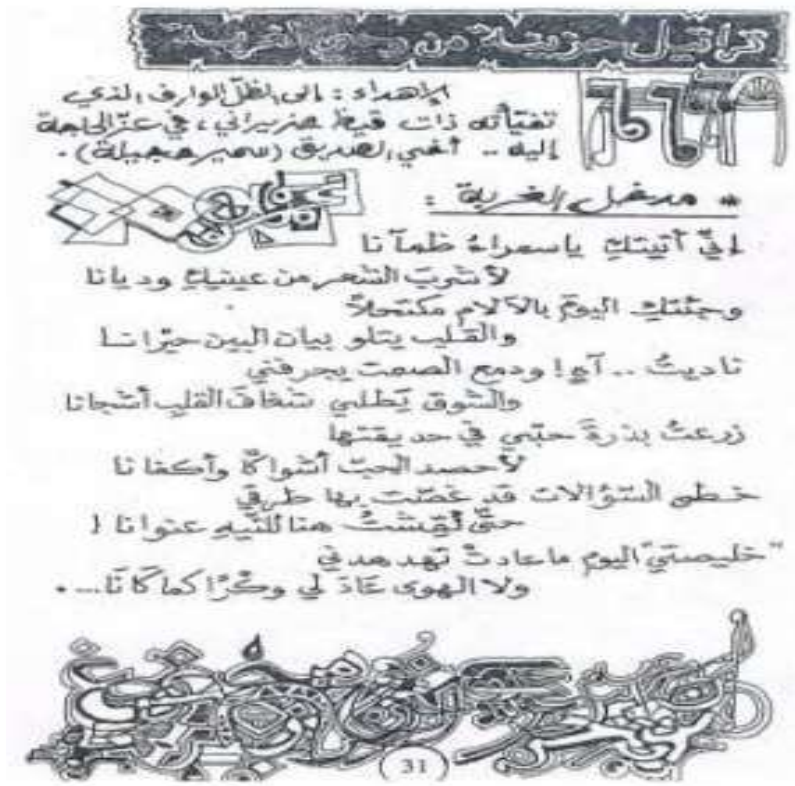 تراتيل حزينة من وحي الغربة
الإهداء : إلى الظلّ الوارف الذي
تفيّأته ذات قيظ حزيراني، في عزّ الحاجة
إليه .. أخي الصديق (سمير مجبلة).
* مدخل الغربة :
إنّي أتيتكِ ياسمراءُ ظمآنا
لأشربَ الشعر من عينيكِ وديانا
وجئتكِ اليومَ بالآلامِ مكتحلاً
والقلب يتلو بيان البين حيرانا
ناديتُ .. آهِ! ودمع الصمت يجرفني
والشوق يَطلي شغافَ القلبِ أشجانا
زرعتُ بذرةَ حبّي في حديقتها
لأحصد الحبّ أشواكًا وأكفانا
خطى السّؤالات قد غصّت بها طرقي
حتّى هنا للتّيهِ عنوانا !
"خليصتي" اليوم ماعادتْ تهدهدني
ولا الهوى عَادَ لي وكْرًا كما كَانَا...
31